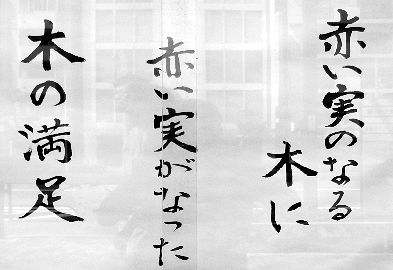 赤い実のなる
木に
赤い実がなった
木の満足